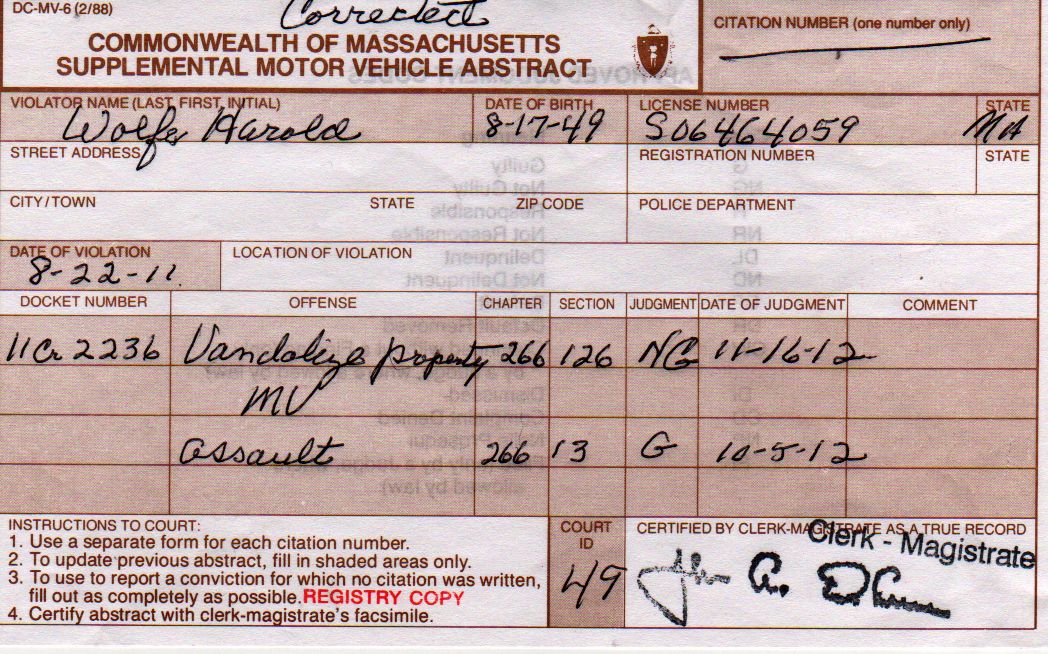 DC-MV-6 (2/88)
Corrected
COMMONWEALTH OF MASSACHUSETTS
SUPPLEMENTAL MOTOR VEHICLE ABSTRACT
CITATION NUMBER (one number only)
VIOLATOR NAME (LAST, FIRST, INITIAL)
Wolfe, Harold
DATE OF BIRTH
8-17-49
LICENSE NUMBER
S06464059
STATE
MA
STREET ADDRESS
REGISTRATION NUMBER
STATE
CITY/TOWN STATE ZIP CODE
POLICE DEPARTMENT
DATE OF VIOLATION
8-22-11
LOCATION OF VIOLATION
DOCKET NUMBER OFFENSE CHAPTER SECTION JUDGMENT DATE OF JUDGMENT COMMENT
11Cr2236 Vandalize property 266 126 NG 11-16-12
MV
Assault 266 13 G 10-5-12
INSTRUCTIONS TO COURT:
1. Use a separate form for each citation number.
2. To update previous abstract, fill in shaded areas only.
3. To use to report a conviction for which no citation was written,
fill out as completely as possible. REGISTRY COPY
4. Certify abstract with clerk-magistrate's facsimile.
COURT
ID
49
CERTIFIED BY CLERK-MAGISTRATE AS A TRUE RECORD
Clerk - Magistrate
John A.